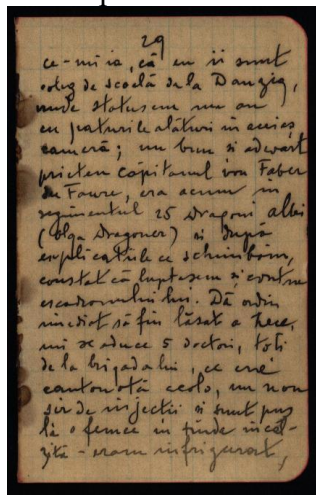 29
ce-mi ia, că eu îi sunt
coleg de școală de la Danzig,
unde statusem un an
cu paturile alături în aceiaș
cameră; un bun și adevărat
prieten căpitanul von Faber
du Faure, era acum în
regimentul 25 Dragoni albi
(Olga Dragoner) și după
explicațiile ce schimbăm,
constat că luptasem și contra
escadronului lui. Dă ordin
imediat să fiu lăsat a trece,
mi se aduce 5 doctori, toți
de la brigada lui, ce era
cantonată acolo, un nou
șir de injecții și sunt pus
la o femee în tinde încăl-
zită - eram infrigurat,